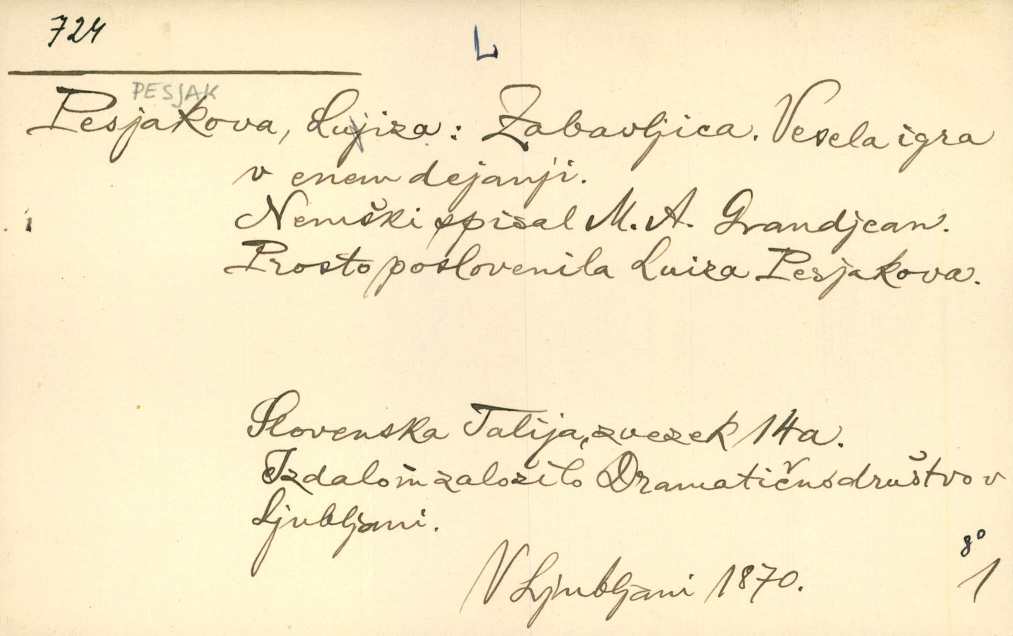 724
L
PESJAK
Pesjakova, Lujiza: Zabavljica. Vesela igra
v enem dejanji.
Nemški spisal M. A. Grandjean.
Prosto poslovenila Luiza Pesjakova.
Slovenska Talija, zvezek 14a.
Izdalo in založilo Dramatično društvo v
Ljubljani.
V Ljubljani 1870.
8°
1